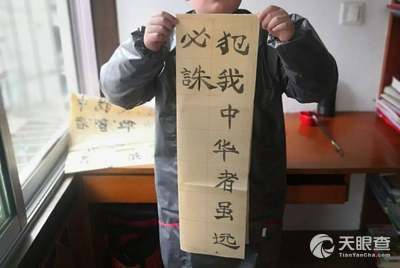 犯我中华者虽远
必誅
天眼查
TianYanCha.com